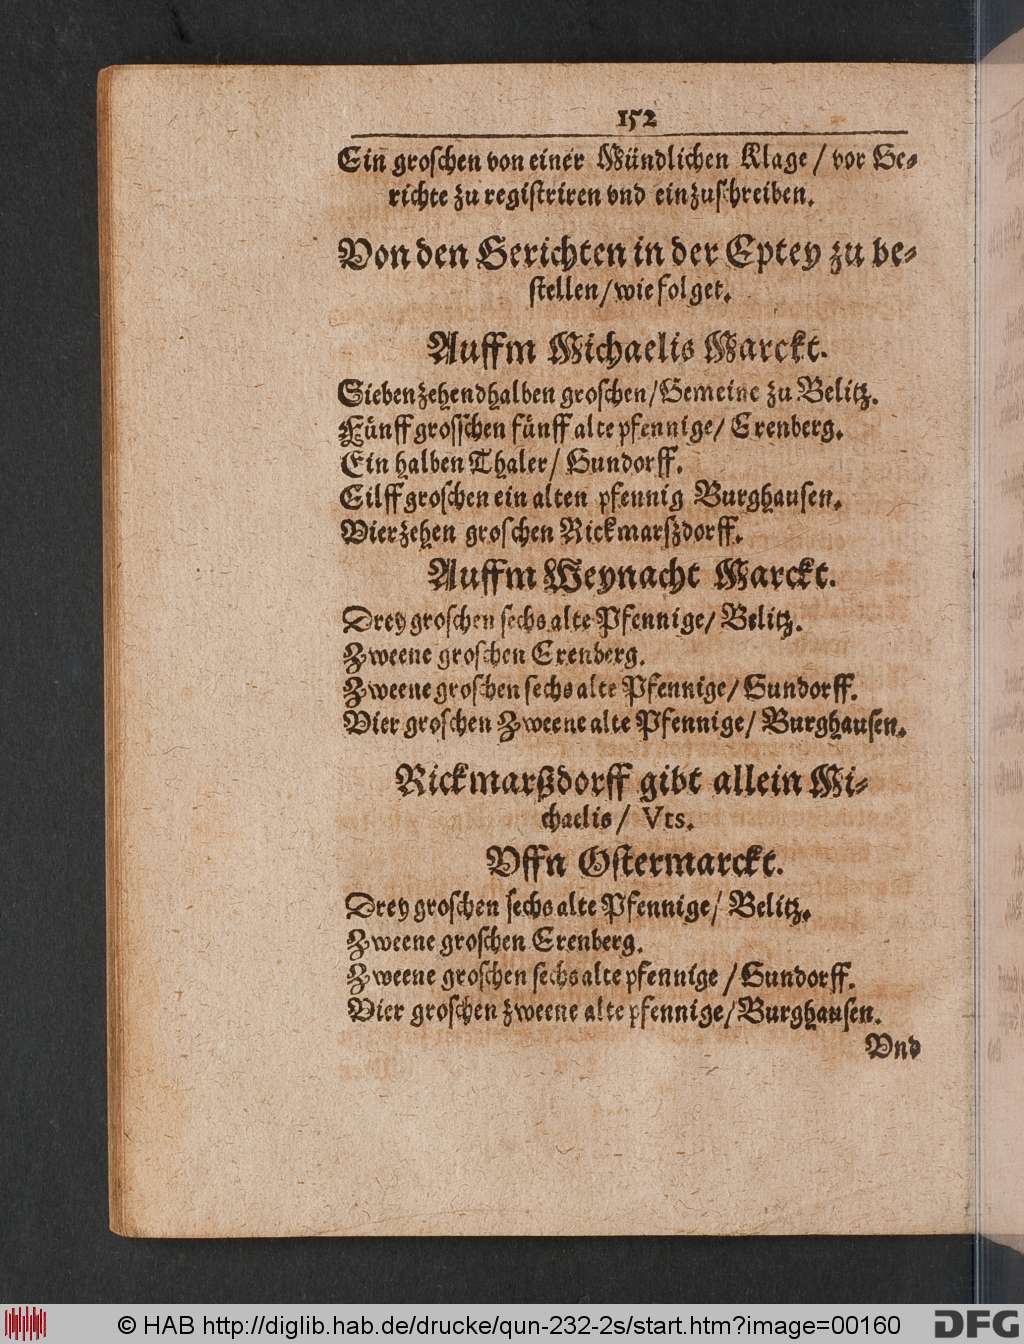 152
Ein groschen von einer Mündlichen Klage / vor Ge-
richte zu registriren vnd einzuschreiben.
Von den Gerichten in der Eptey zu be-
stellen / wie folget.
Auffm Michaelis Marckt.
Siebenzehendhalben groschen / Gemeine zu Belitz.
Fünff grosschen fünff alte pfennige / Erenberg.
Ein halben Thaler / Gundorff.
Eilff groschen ein alten pfennig Burghausen.
Vierzehen groschen Rickmarszdorff.
Auffm Weynacht Marckt.
Drey groschen sechs alte Pfennige / Belitz.
Zweene groschen Erenberg.
Zweene groschen sechs alte Pfennige / Gundorff.
Vier groschen Zweene alte Pfennige / Burghausen.
Rickmarßdorff gibt allein Mi-
chaelis / Vts.
Vffn Ostermarckt.
Drey groschen sechs alte Pfennige / Belitz.
Zweene groschen Erenberg.
Zweene groschen sechs alte pfennige / Gundorff.
Vier groschen zweene alte pfennige / Burghausen.
Vnd
© HAB http://diglib.hab.de/drucke/qun-232-2s/start.htm?image=00160
DFG